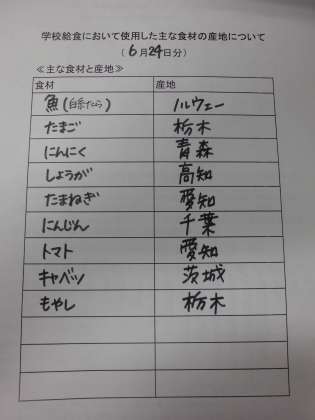 学校給食において使用した主な食材の産地について
（6月24日分）
≪主な食材と産地≫
食材 産地
魚(白糸だら) ノルウェー
たまご 栃木
にんにく 青森
しょうが 高知
たまねぎ 愛知
にんじん 千葉
トマト 愛知
キャベツ 茨城
もやし 栃木